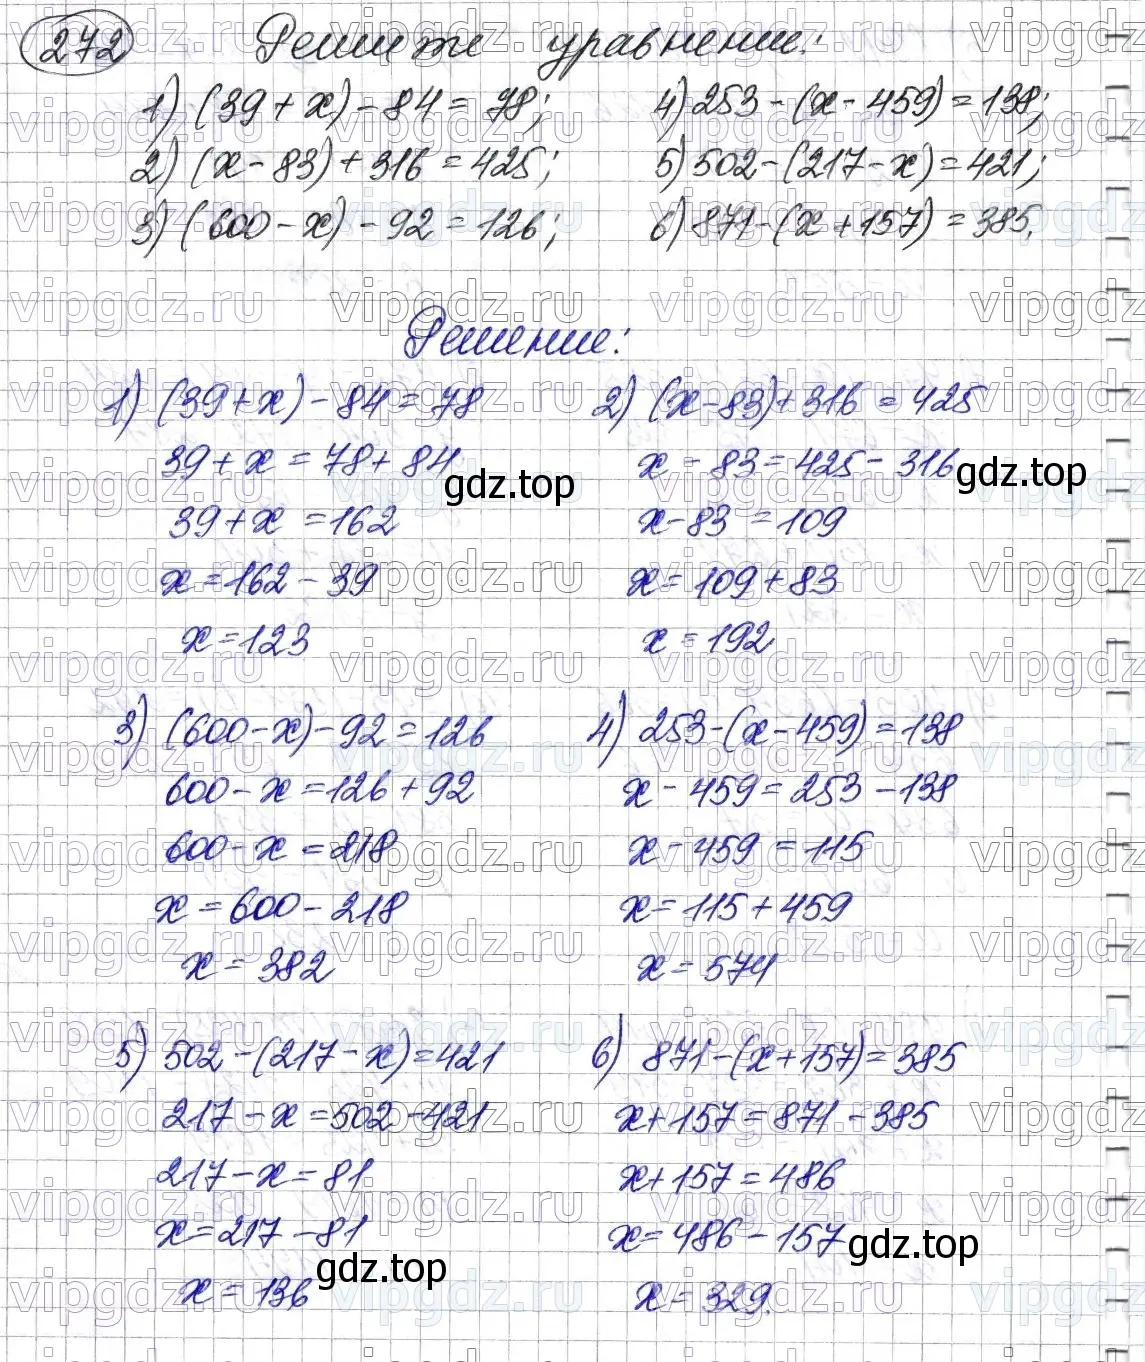 272 Решите уравнение:
1) (39 + x) - 84 = 78; 4) 253 - (x - 459) = 138;
2) (x - 83) + 316 = 425; 5) 502 - (217 - x) = 421;
3) (600 - x) - 92 = 126; 6) 871 - (x + 157) = 385.
Решение:
1) (39 + x) - 84 = 78
39 + x = 78 + 84
39 + x = 162
x = 162 - 39
x = 123
2) (x - 83) + 316 = 425
x - 83 = 425 - 316
x - 83 = 109
x = 109 + 83
x = 192
3) (600 - x) - 92 = 126
600 - x = 126 + 92
600 - x = 218
x = 600 - 218
x = 382
4) 253 - (x - 459) = 138
x - 459 = 253 - 138
x - 459 = 115
x = 115 + 459
x = 574
5) 502 - (217 - x) = 421
217 - x = 502 - 421
217 - x = 81
x = 217 - 81
x = 136
6) 871 - (x + 157) = 385
x + 157 = 871 - 385
x + 157 = 486
x = 486 - 157
x = 329.
gdz.top
gdz.top
gdz.top
gdz.top
vipgdz.ru